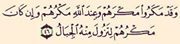 وَقَدْ مَكَرُوا۟ مَكْرَهُمْ وَعِندَ ٱللَّهِ مَكْرُهُمْ وَإِن كَانَ
مَكْرُهُمْ لِتَزُولَ مِنْهُ ٱلْجِبَالُ ٤٦